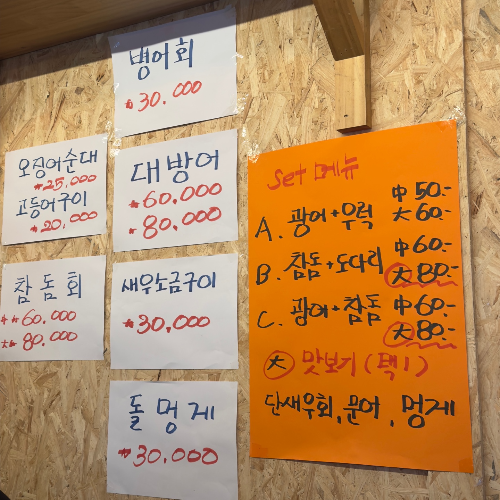 병어회
*30.000
오징어순대
*25.000
고등어구이
*20.000
대방어
*60.000
*80.000
참돔회
**60.000
**80.000
새우소금구이
*30.000
돌멍게
*30.000
Set 메뉴
A. 광어+우럭 中 50.-
大 60.-
B. 참돔+도다리 中 60.-
大 80.-
C. 광어+참돔 中 60.-
大 80.-
大 맛보기 (택1)
단새우회, 문어, 멍게